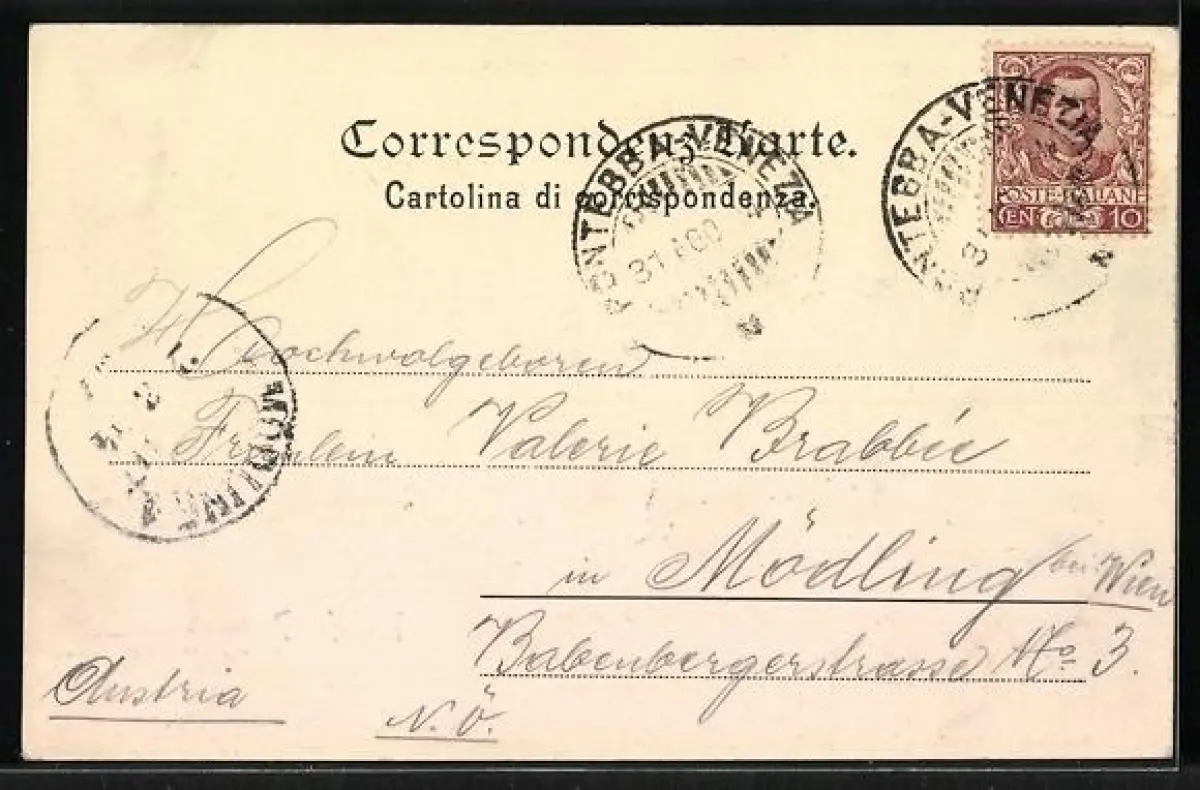 Correspondenz-Karte.
Cartolina di corrispondenza.
PONTEBBA-VENEZIA
31 AGO
PONTEBBA-VENEZIA
POSTE ITALIANE
CEN 10
Hochwolgeboren
Fräulein Valerie Brabbée
in Mödling bei Wien
Babenbergerstrasse No 3.
Austria
N. Ö.
MÖDLING